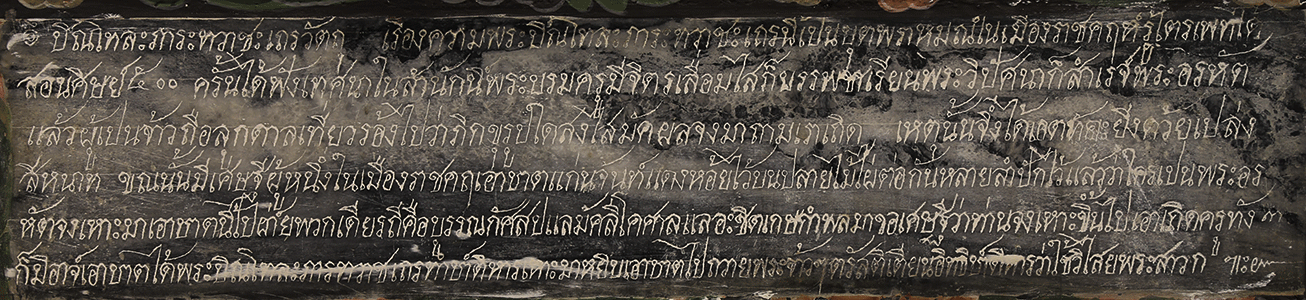 ๏ ปิณโฑละรกระทวาชะเถรวัตถุ เรื่องความพระปิณโฑละภาระทวาชะเถรนี้เปนบุตพราหมณในเมืองราชคฤห์รู้ไตรเพทได้
สอนศิษย์ ๕๐๐ ครั้นได้ฟังเทศนาในสำนักนิพระบรมครูมีจิตรเลื่อมใสก็บรรพชาเรียนพระวิปัศนาก็สำเรจ์พระอรหัต
แล้วผู้เปนท้าวถือลูกดาลเที่ยวร้องไปว่าภิกขุรูปใดสงไสมัคผลจงมาถามเราเถิด เหตุนั้นจึ่งได้เอตทัคะยิ่งด้วยเปล่ง
สีหนาท ขณนั้นมีเศษฐีผู้หนึ่งในเมืองราชคฤเอาบาตแก่นจันท์แดงห้อยไว้บนปลายไม้ไผ่ต่อกันหลายลำปักไว้แล้วว่าใครเปนพระอร
หัตจงเหาะมาเอาบาตนี้ไป ฝ่ายพวกเดียรถีคือบูรรณกัสสปแลมักลิโคศาลแลอะชิตเกษกำพลมาขอเศษฐีว่าท่านจงเหาะขึ้นไปเอาเถิดครูทัง ๓
ก็มิอาจ์เอาบาตได้พระปิณโฑละภารทวาชะเถรทำปาติหารเหาะมาหยิบเอาบาตไปถวายพระเจ้าๆตรัสติเตียนอิทธิปาติหารว่าใช้วิไสยพระสาวก ๚ะ๛